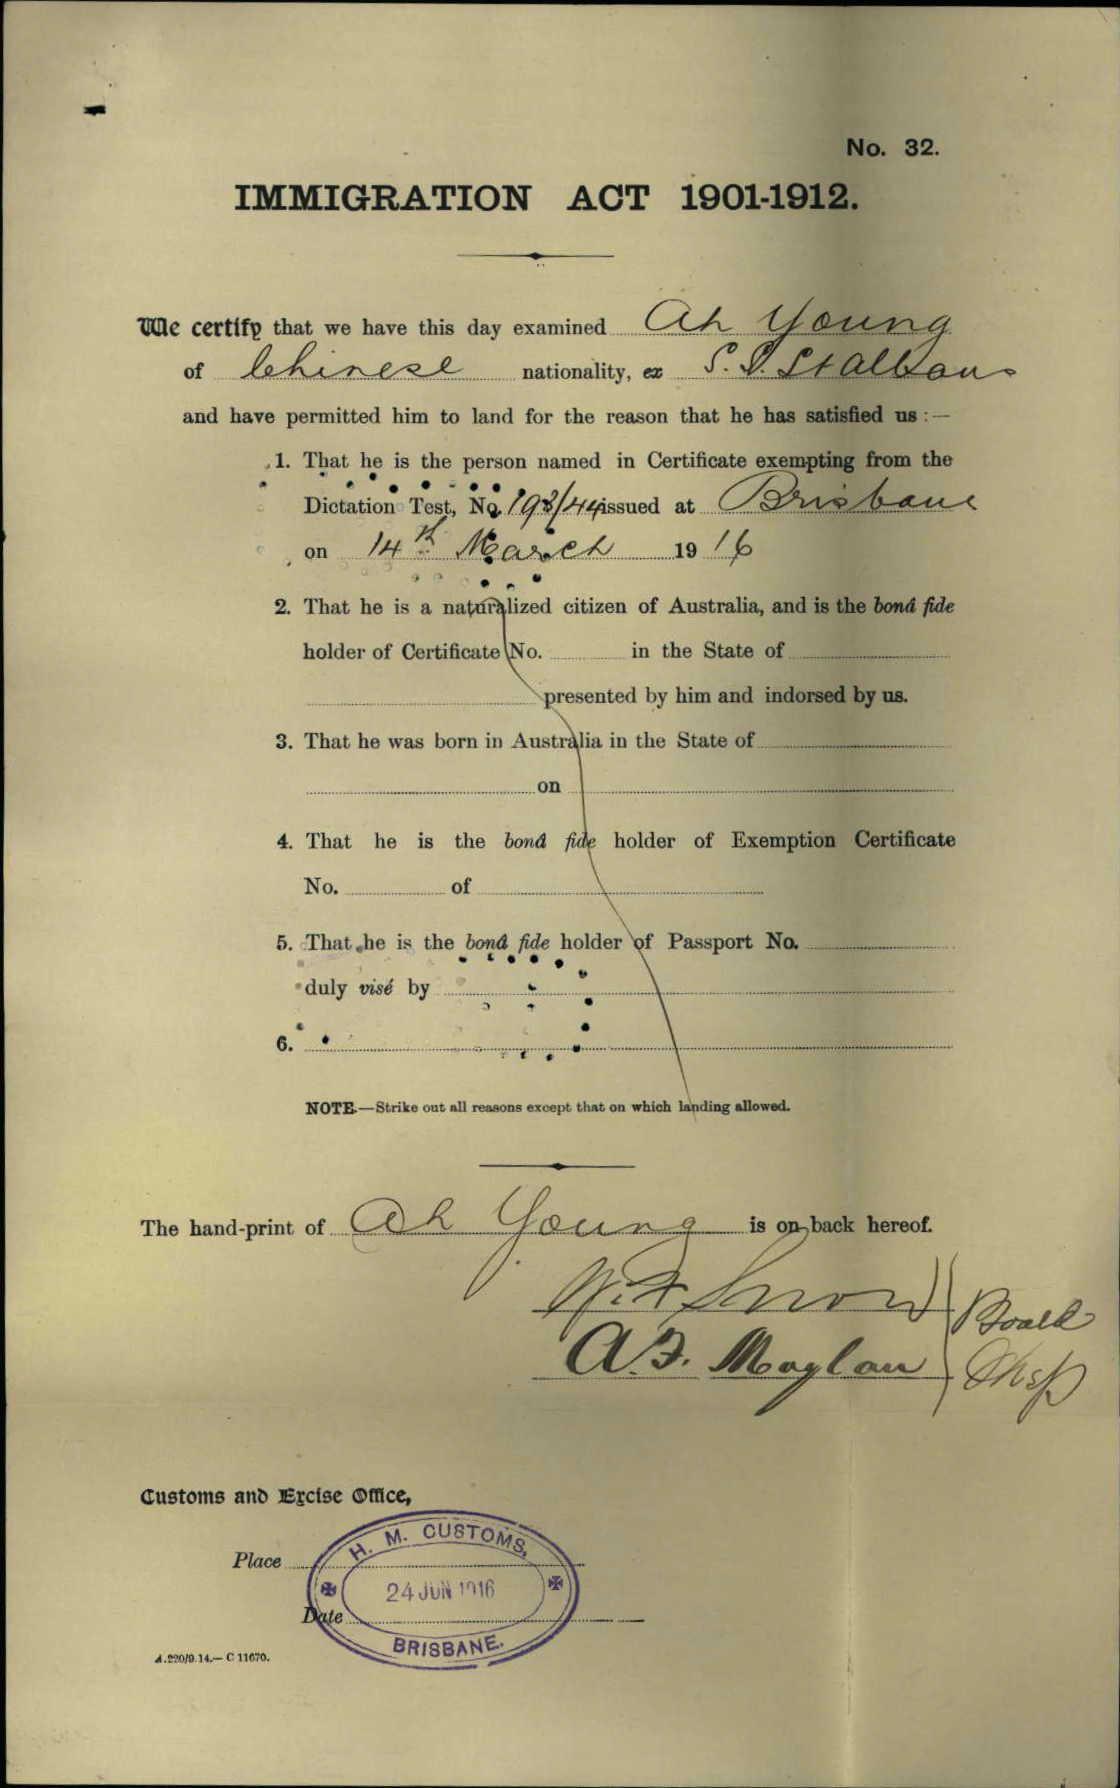 No. 32.
IMMIGRATION ACT 1901-1912.
We certify that we have this day examined Ah Young
of Chinese nationality, ex S.S. St Albans
and have permitted him to land for the reason that he has satisfied us :—
1. That he is the person named in Certificate exempting from the
Dictation Test, No. 193/44 issued at Brisbane
on 14th March 1916
2. That he is a naturalized citizen of Australia, and is the bonâ fide
holder of Certificate No. in the State of
presented by him and indorsed by us.
3. That he was born in Australia in the State of
on
4. That he is the bonâ fide holder of Exemption Certificate
No. of
5. That he is the bonâ fide holder of Passport No.
duly visé by
6.
NOTE.—Strike out all reasons except that on which landing allowed.
The hand-print of Ah Young is on back hereof.
A.F.
Customs and Excise Office,
Place
H. M. CUSTOMS,
24 JUN 1916
Date
BRISBANE.
A.220/9.14.—C 11670.